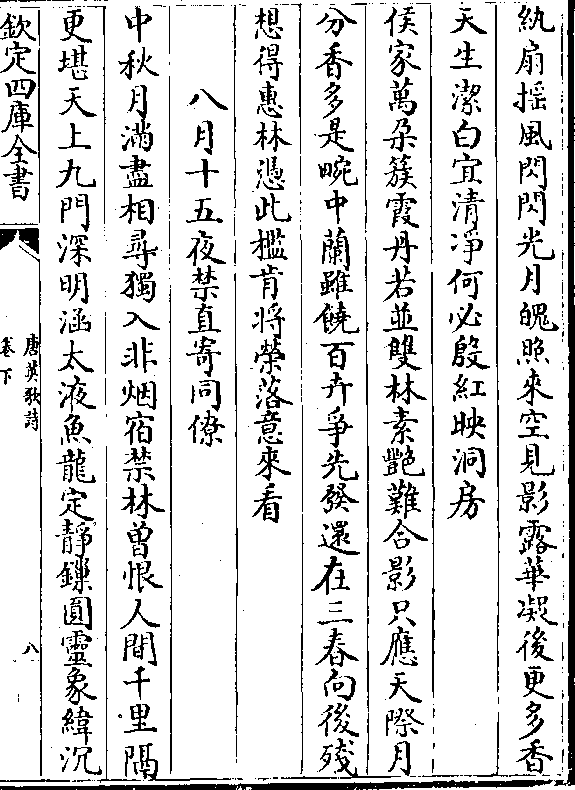 紈扇揺風閃閃光月魄照來空見影露華凝後更多香
天生潔白宜清淨何必殷紅映洞房
侯家萬朶簇霞丹若並雙林素艷難合影只應天際月
分香多是畹中蘭雖饒百卉爭先發還在三春向後殘
想得惠林慿此檻肯將榮落意來看
八月十五夜禁直寄同僚
中秋月滿盡相尋獨入非烟宿禁林曽恨人間千里隔
更堪天上九門深明涵太液魚龍定靜鏁圓靈象緯沉
欽定四庫全書
唐英歌詩
卷下
八